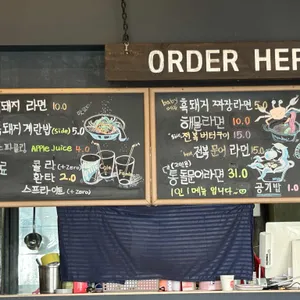 ORDER HER
돼지 라면 10.0
흑돼지 계란밥(side) 5.0
Apple Juice 4.0
콜라 (+zero)
환타 2.0
스프라이트 (+zero)
흑돼지 짜장라면
해물라면 10.0
전복버터구이 15.0
전복 문어 라면
통 돌문어라면 31.0
1인 1메뉴 입니다~♡
공기밥 1.0